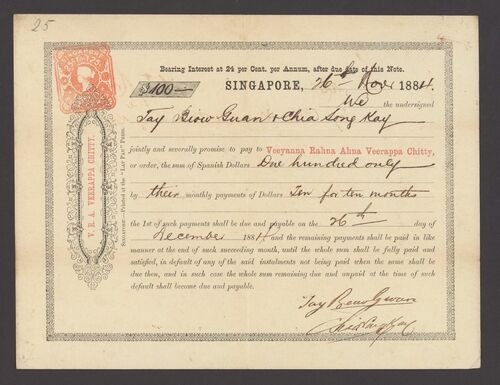 25
Bearing Interest at 24 per Cent. per Annum, after due date of this Note.
$100—
SINGAPORE, 26th Nov 1884.
We the undersigned
Tay Biow Guan & Chia Song Kay
jointly and severally promise to pay to Veeyanna Rahna Ahna Veerappa Chitty,
or order, the sum of Spanish Dollars One hundred only
by their monthly payments of Dollars Ten for ten months
the 1st of such payments shall be due and payable on the 26th day of
December 1884 and the remaining payments shall be paid in like
manner at the end of each succeeding month, until the whole sum shall be fully paid and
satisfied, in default of any of the said instalments not being paid when the same shall be
due then, and in such case the whole sum remaining due and unpaid at the time of such
default shall become due and payable.
Tay Beow Gwan
V. R. A. VEERAPPA CHITTY.
SINGAPORE—Printed at the "LAT PAU" PRESS.